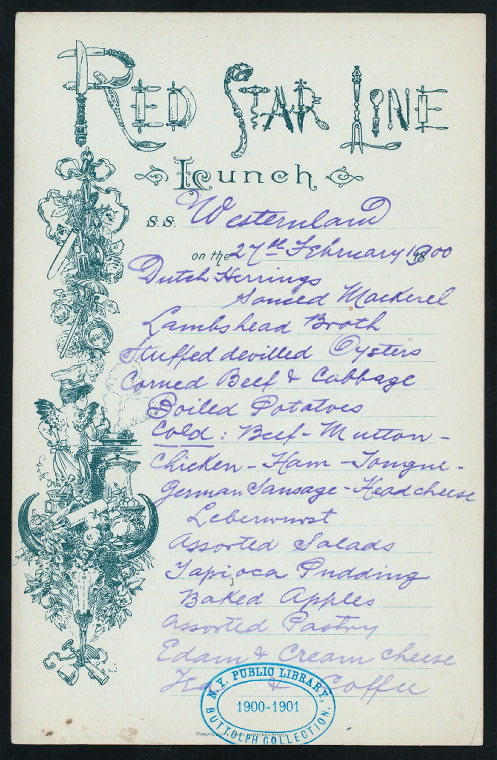 RED STAR LINE
Lunch
S.S. Westernland
on the 27th February 1900
Dutch Herrings
Soused Mackerel
Lambshead Broth
Stuffed devilled Oysters
Corned Beef & Cabbage
Boiled Potatoes
Cold: Beef - Mutton -
Chicken - Ham - Tongue -
German Sausage - Headcheese
Leberwurst
Assorted Salads
Tapioca Pudding
Baked Apples
Assorted Pastry
Edam & Cream cheese
Tea & Coffee
N.Y. PUBLIC LIBRARY,
1900-1901
BUTTOLPH COLLECTION.